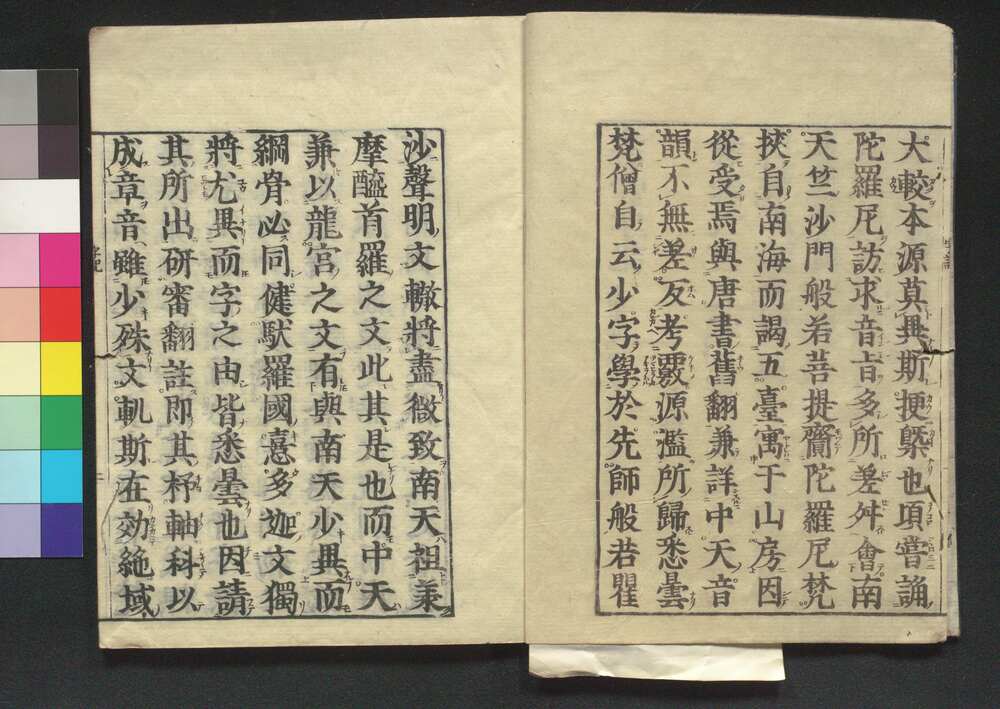 大較本源莫典斯挭槩也項嘗誦
陀羅尼訪求音旨多所差舛會南
天竺沙門般若菩提齎陀羅尼梵
挾自南海而謁五臺寓于山房因
從受焉與唐書舊翻兼詳中天音
韻不無差反考覈源濫所歸悉曇
梵僧自云少字學於先師般若瞿
沙聲明文轍將盡微致南天祖承
摩醯首羅之文此其是也而中天
兼以龍宮之文有與南天少異而
綱骨必同健馱羅國憙多迦文獨
將尤異而字之由皆悉曇也因請
其所出研審翻註即其杼軸科以
成章音雖少殊文軌斯在効絶域